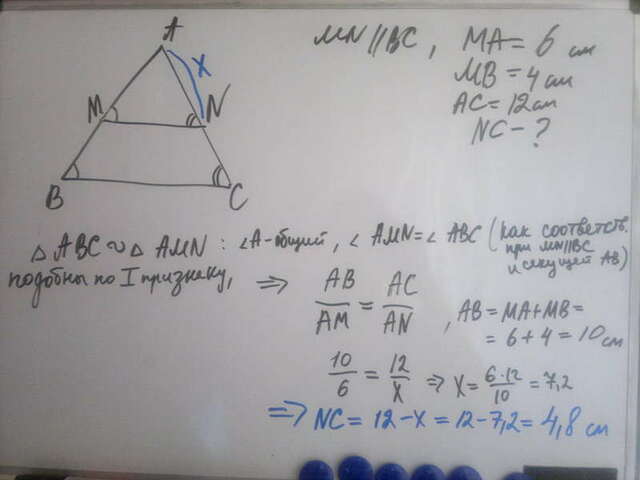 A
x
M
N
B
C
MN//BC, MA = 6 см
MB = 4 см
AC = 12 см
NC - ?
△ ABC ∾ △ AMN : ∠A - общий, ∠ AMN = ∠ ABC (как соответств.
при MN//BC
и секущей AB)
подобны по I признаку,
⇒ AB/AM = AC/AN , AB = MA + MB =
= 6 + 4 = 10 см
10/6 = 12/x ⇒ x = 6·12/10 = 7,2
⇒ NC = 12 - x = 12 - 7,2 = 4,8 см